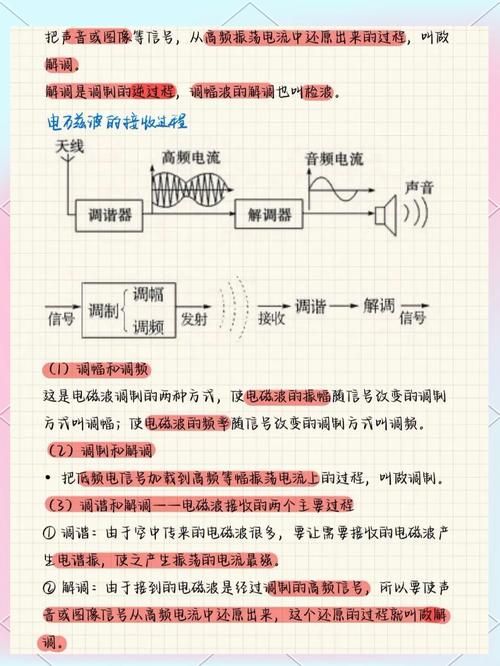 把声音或图像等信号，从高频振荡电流中还原出来的过程，叫做
解调。
解调是调制的逆过程，调幅波的解调也叫检波。
电磁波的接收过程
天线
高频电流
音频电流
声音
调谐器
解调器
信号
调制
调幅
调频
发射
接收
调谐
解调
信号
(1) 调幅和调频
这是电磁波调制的两种方式，使电磁波的振幅随信号改变的调制
方式叫调幅；使电磁波的频率随信号改变的调制方式叫调频。
(2) 调制和解调
• 把低频电信号加载到高频等幅振荡电流上的过程，叫做调制。
(3) 调谐和解调——电磁波接收的两个主要过程
① 调谐：由于空中传来的电磁波很多，要让需要接收的电磁波产
生电谐振，使之产生振荡的电流最强。
② 解调：由于接到的电磁波是经过调制的高频信号，所以要使声
音或图像信号从高频电流中还原出来，这个还原的过程就叫做解
调。